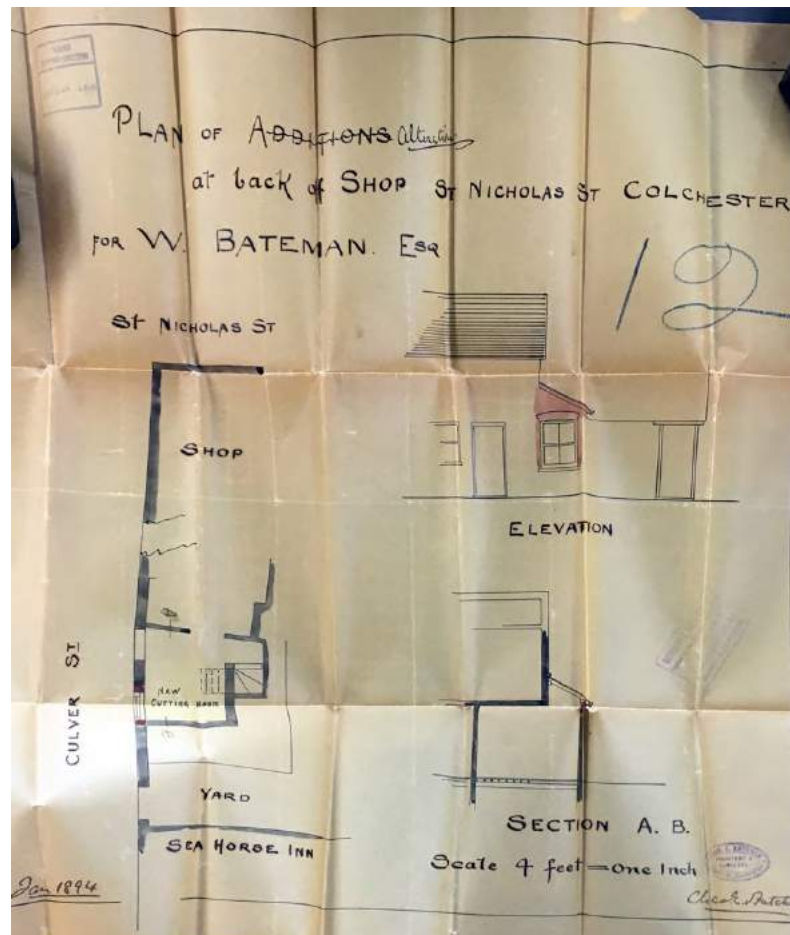 PLAN OF ADDITIONS
at back of SHOP ST NICHOLAS ST COLCHESTER
FOR W. BATEMAN. ESQ
12
St NICHOLAS ST
SHOP
ELEVATION
CULVER ST
NEW
CUTTING ROOM
YARD
SEA HORSE INN
SECTION A. B.
Scale 4 feet = one Inch
Jan 1894